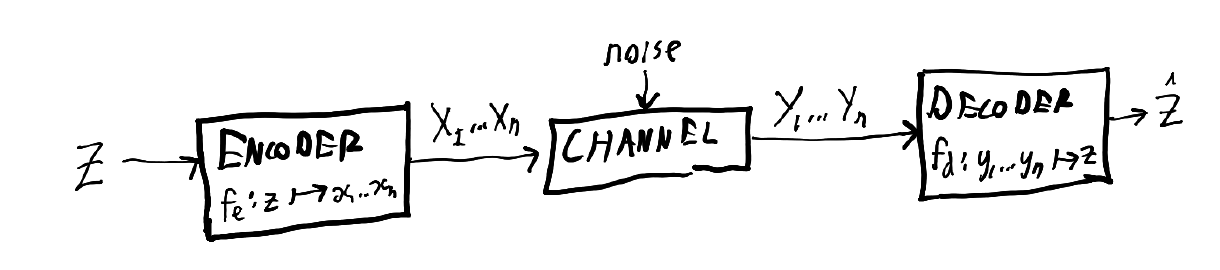 noise
Z
ENCODER
fe : z ↦ x1...xn
X1...Xn
CHANNEL
Y1...Yn
DECODER
fd : y1...yn ↦ z
Ẑ